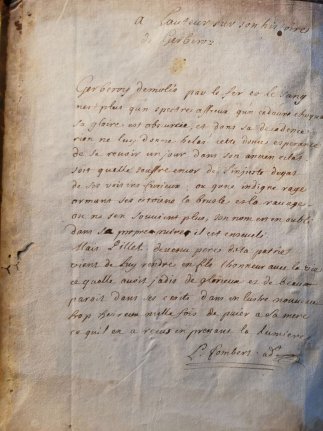 A l'auteur sur son histoire
de Gerberoy
Gerberoy demolis par le fer et le sang
n'est plus qu'un spectre affreux qu'un cadavre
sa gloire est obscurcie, et dans sa decadence
rien ne luy donne helas cette douce esperance
de se revoir un jour dans son ancien eclat
soit qu'elle souffre encor de l'injuste
de ses voisins furieux, ou qu'une indigne rage
armans ses citoyens la brusle et la ravage
on ne s'en souvient plus, son nom est en oubli
dans sa propre il est enseveli
Mais Pillet, de sa patrie
vient de luy rendre en fils l'honneur avec la vie
ce qu'elle avoit jadis de glorieux et de beau
paroit dans ses escrits dans un lustre nouveau
trop heureux mille fois de paier a sa mere
ce qu'il en a receu en prenans la lumiere